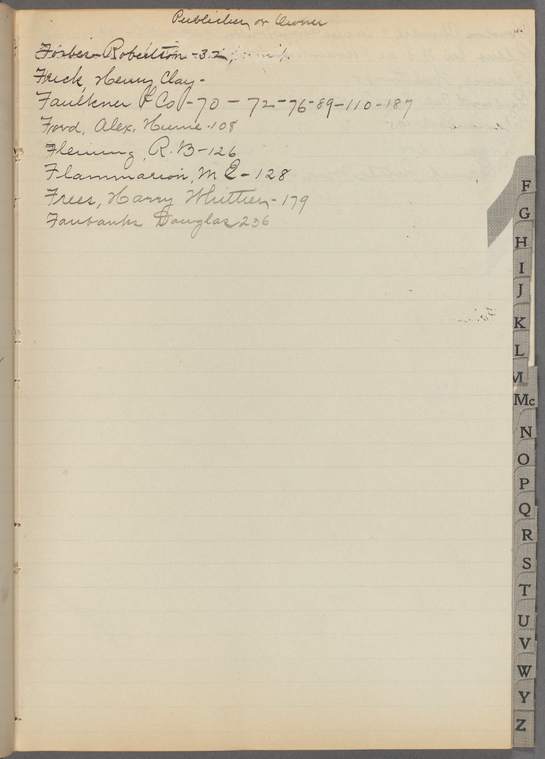 Publisher or Owner
Forbes-Robertson-32
Frick, Henny Clay-
Faulkner & Co-70-72-76-89-110-187
Ford, Alex. Hume-108
Fleming, R.B-126
Flammarion, M C-128
Frees, Harry Whittier-179
Fairbanks Douglas 236
F
G
H
I
J
K
L
M
Mc
N
O
P
Q
R
S
T
U
V
W
Y
Z